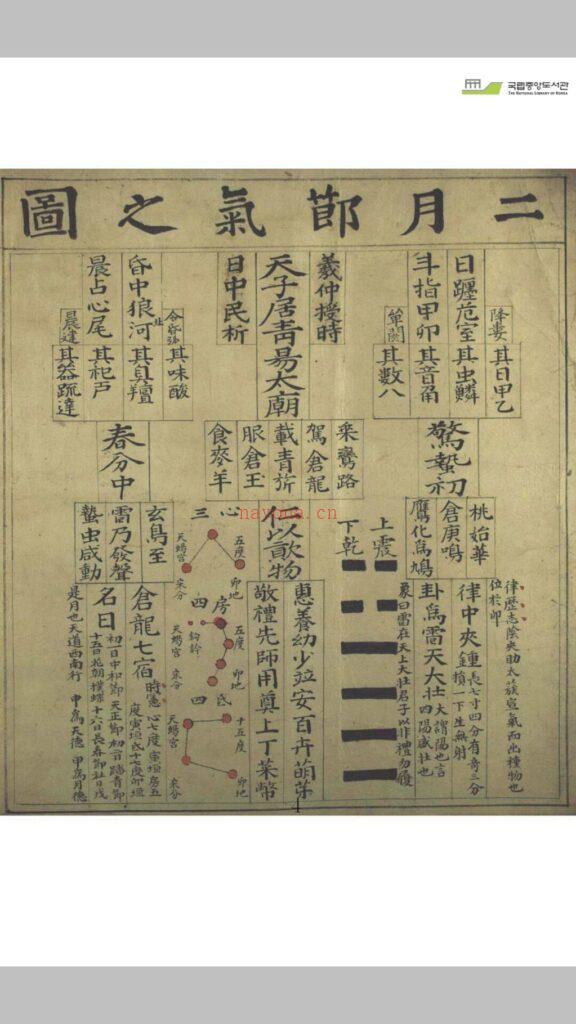 국립중앙도서관
THE NATIONAL LIBRARY OF KOREA
二月節氣之圖
降婁
其日甲乙
日躔危室
其虫鱗
斗指甲卯
其音角
單閼
其數八
羲仲授時
天子居青昜太廟
日中民析
其味酸
昏中狼河
其臭羶
晨占心尾
其祀戸
晨建
其器䟽達
驚蟄初
桃始華
倉庚鳴
鷹化為鳩
乘鸞路
駕倉龍
載青旂
服倉玉
食麥羊
春分中
玄鳥至
雷乃發聲
蟄虫咸動
律歷志陰夾助太蔟宣氣而出種物也
位於卯
律中夾鍾
長七寸四分有奇三分
損一下生無射
卦為雷天大壯
大謂陽也言
四陽盛壯也
象曰雷在天上大壯君子以非禮勿履
上震
下乾
惠養幼少竝安百卉萌芽
敬禮先師用奠上丁菜幣
心三
五度
卯地
天蝎宮
宋分
房四
鉤鈐
五度
卯地
天蝎宮
宋分
氐四
十五度
卯地
天蝎宮
宋分
倉龍七宿
名日
初一日中和節
天正節
初二日踏青節
是月也天道西南行
申為天德
甲為月德
nayona.cn